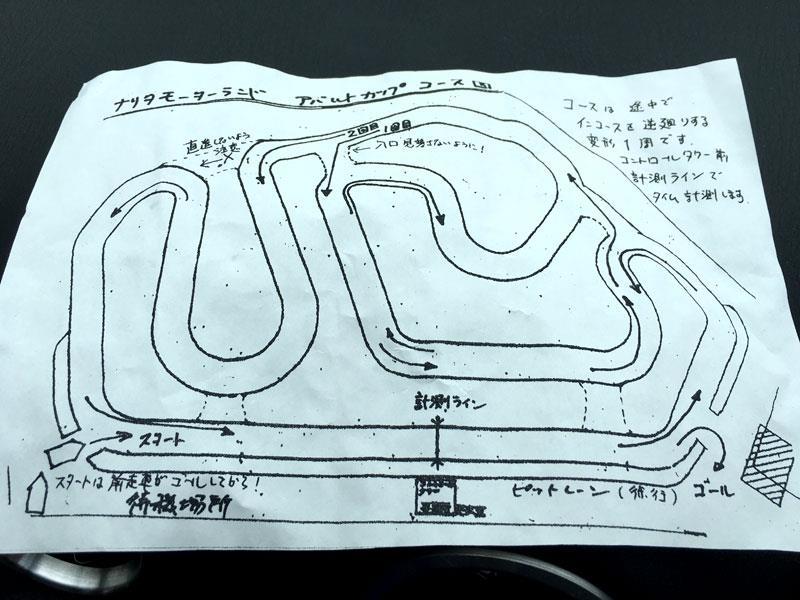 ナリタモーターランド アバルトカップ コース図
コースは 途中で
インコースを 逆廻りする
変形 1周です.
コントロールタワー前
計測ラインで
タイム計測します.
直進しないよう
注意
2回目 1回目
← 入口 見落さないように!
計測ライン
スタート
スタートは 前走車が ゴールしてから!
待機場所
ピットレーン (徐行)
ゴール